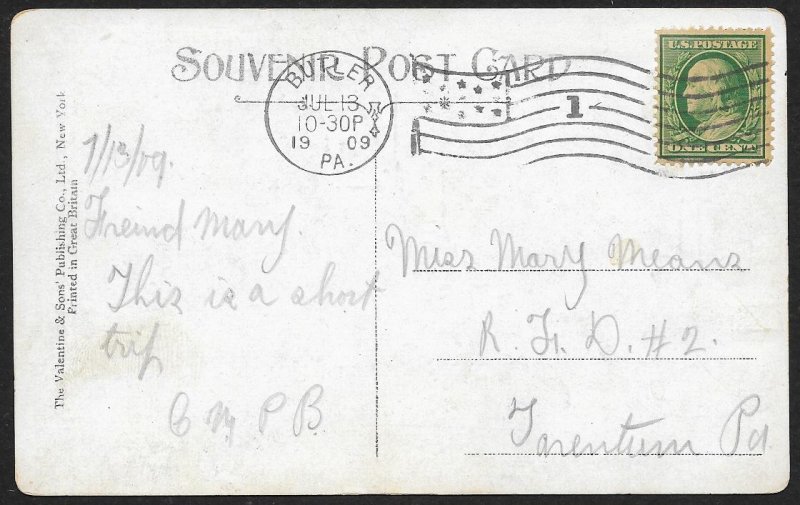 SOUVENIR POST CARD
BUTLER
JUL 13
10-30P
19 09
PA.
1
U.S. POSTAGE
ONE CENT
The Valentine & Sons' Publishing Co., Ltd., New York
Printed in Great Britain
7/13/09.
Freind Mary.
This is a short
trip
C M P B
Miss Mary Means
R. F. D. #2.
Tarentum Pa